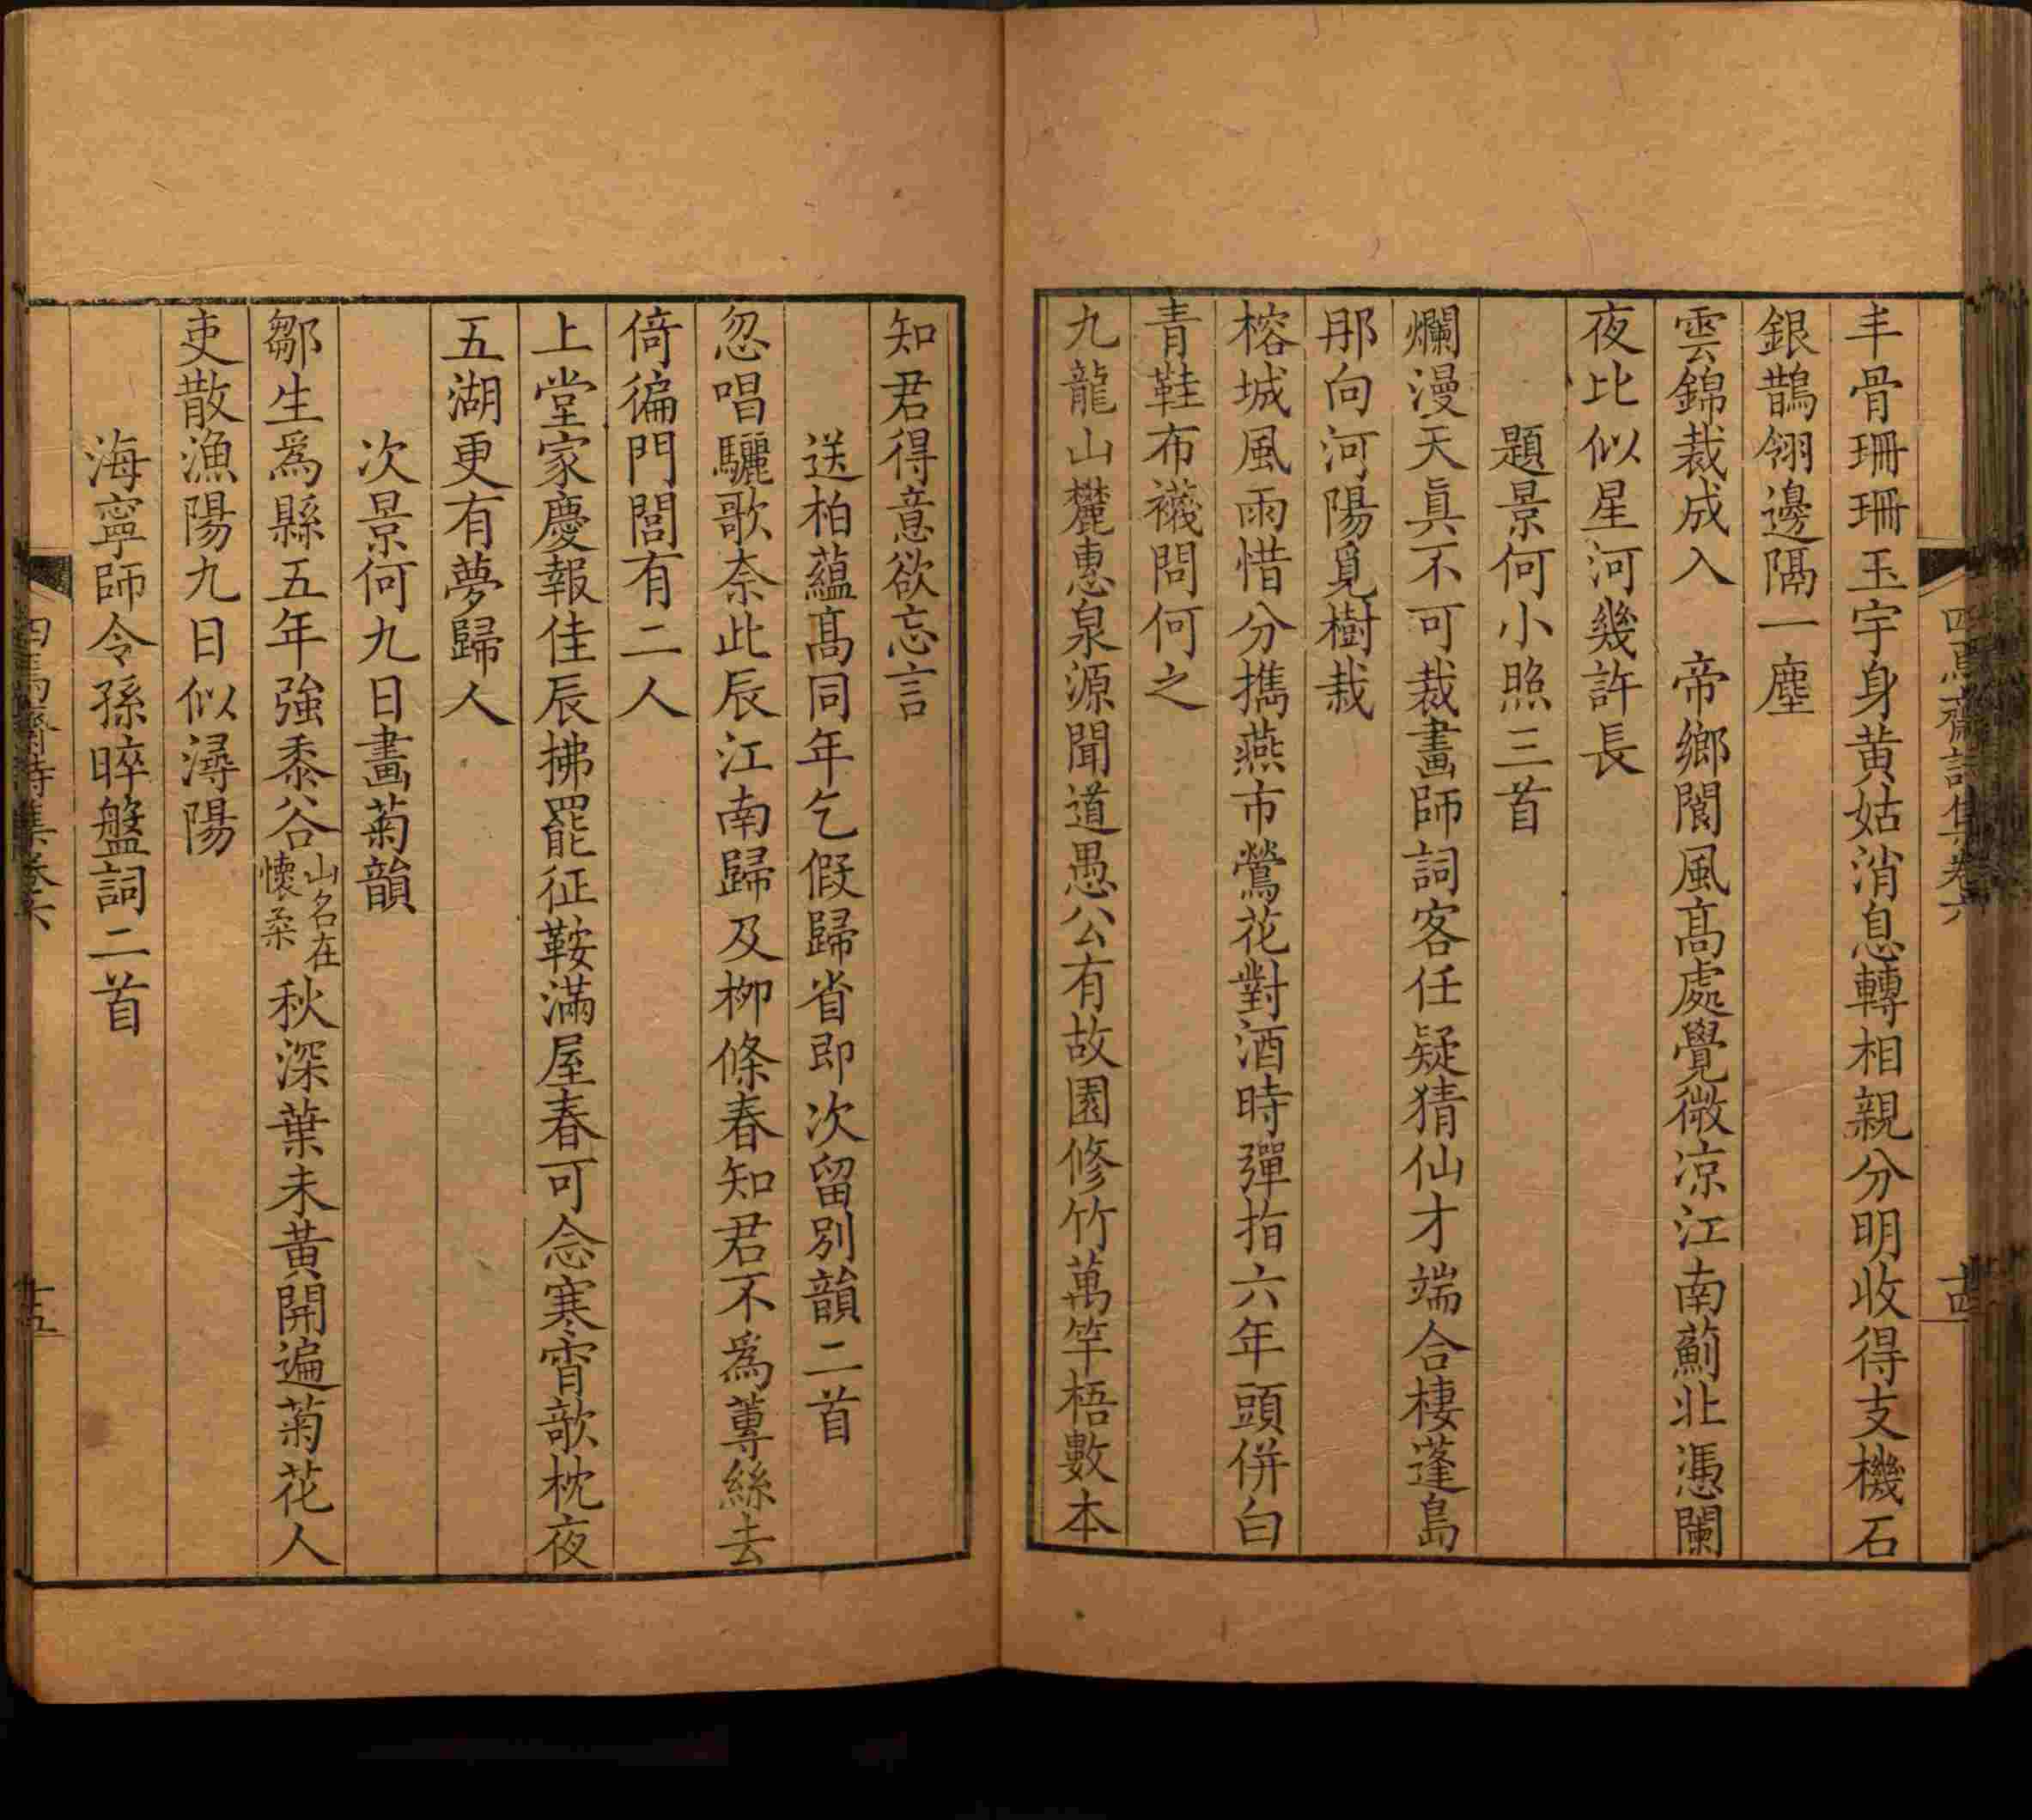 丰骨珊珊玉宇身黄姑消息轉相親分明收得支機石
銀鵲翎邊隔一塵
雲錦裁成入　帝鄉閬風髙處覺微凉江南薊北憑闌
夜比似星河幾許長
題景何小照三首
爛漫天眞不可裁畫師詞客任疑猜仙才端合棲蓬島
那向河陽覓樹栽
榕城風雨惜分攜燕市鶯花對酒時彈指六年頭併白
青鞋布襪問何之
九龍山麓惠泉源聞道愚公有故園修竹萬竿梧數本
知君得意欲忘言
送柏蘊髙同年乞假歸省即次留別韻二首
忽唱驪歌奈此辰江南歸及栁條春知君不爲蓴絲去
倚徧門閭有二人
上堂家慶報佳辰拂罷征鞍滿屋春可念寒宵欹枕夜
五湖更有夢歸人
次景何九日畫菊韻
鄒生爲縣五年強黍谷山名在懷柔秋深葉未黃開遍菊花人
吏散漁陽九日似潯陽
海寧師令孫晬盤詞二首
四焉齋詩集卷六
十四
四焉齋詩集卷六
十五